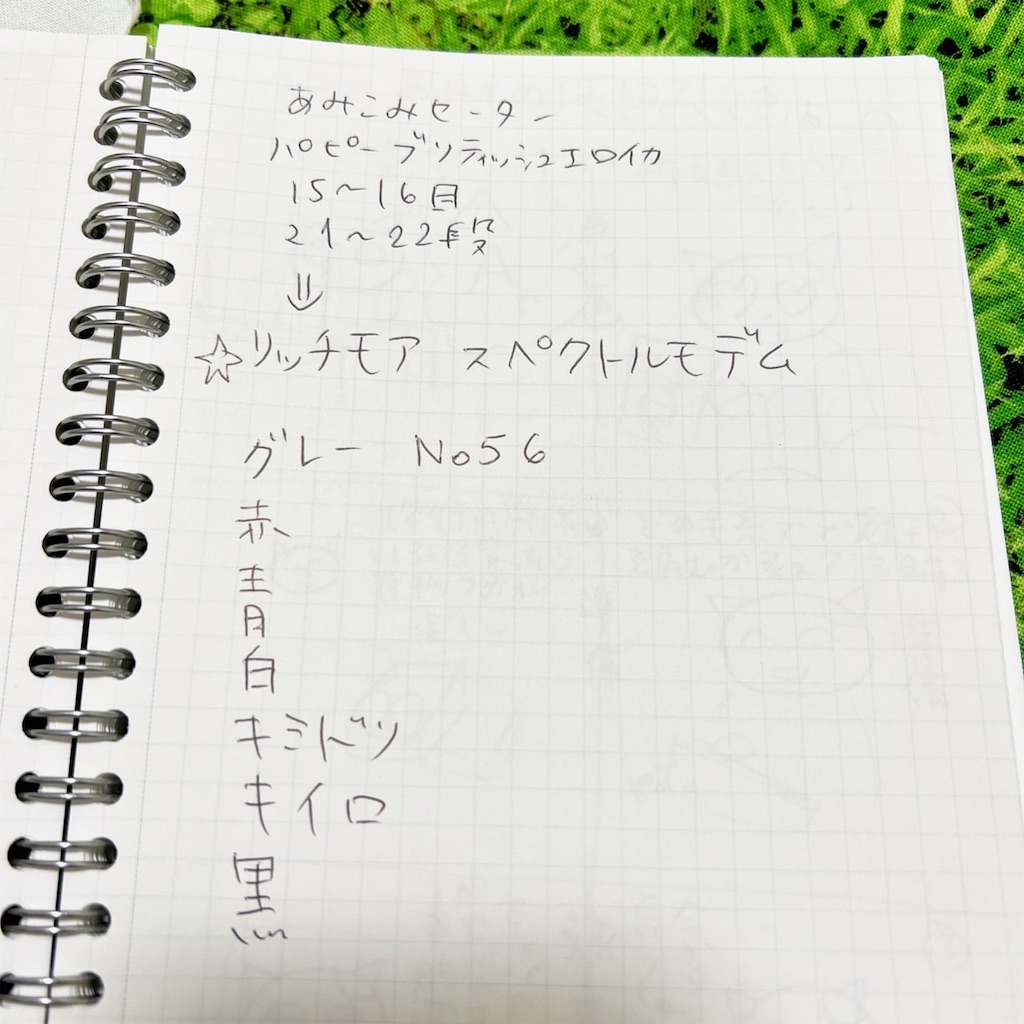 あみこみセーター
パピーブリティッシュエロイカ
15〜16目
21〜22段
⇓
☆リッチモア スペクトルモデム
グレー No56
赤
青
白
キミドリ
キイロ
黒